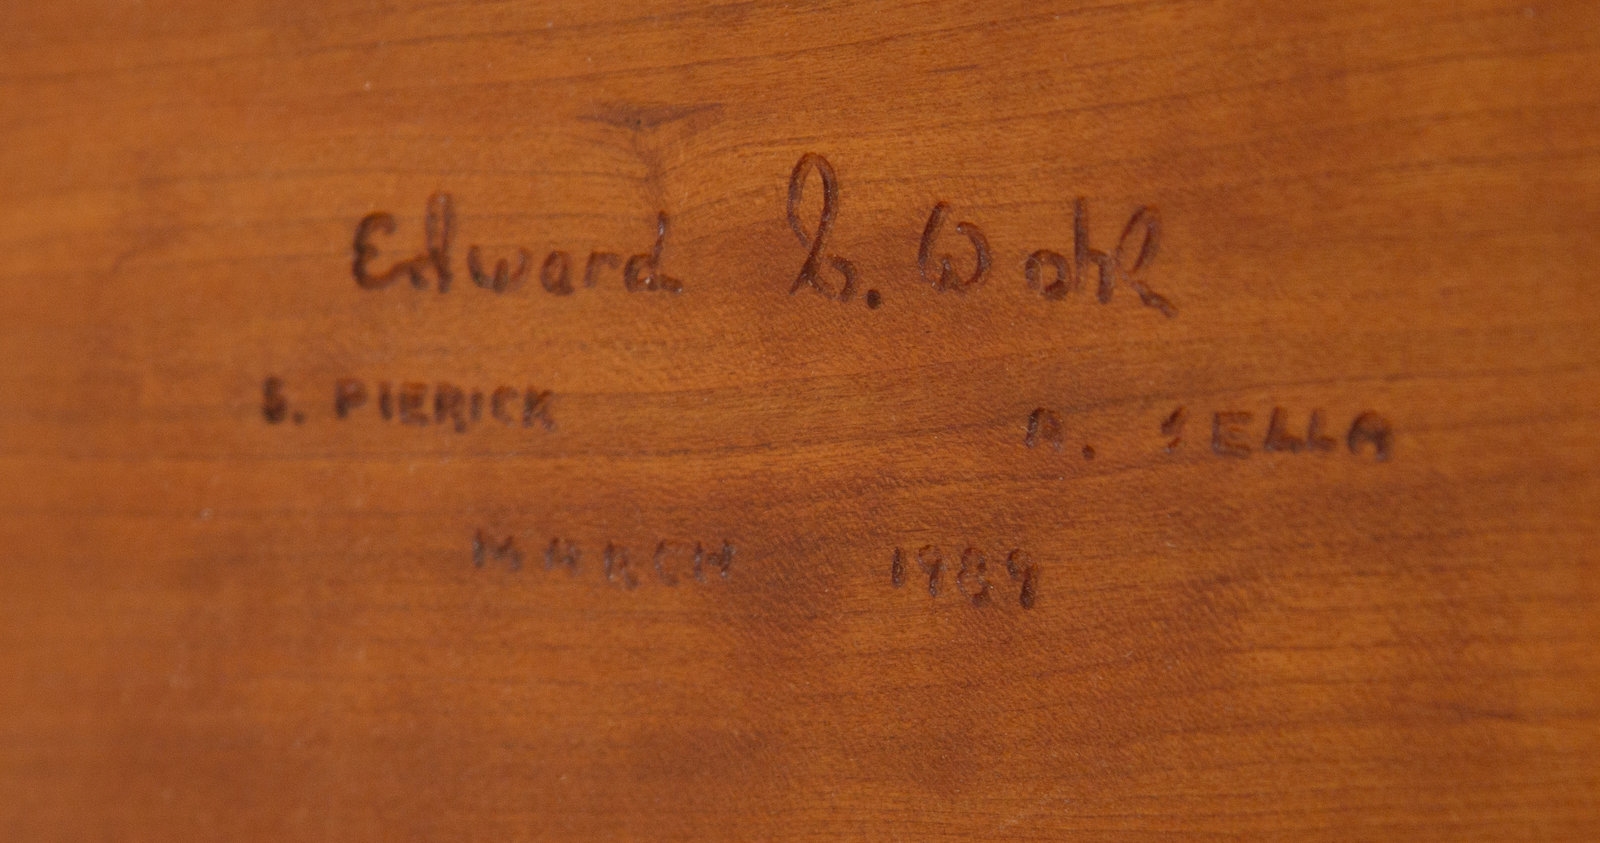 Edward S. Wohl
S. PIERICK A. SELLA
MARCH 1989